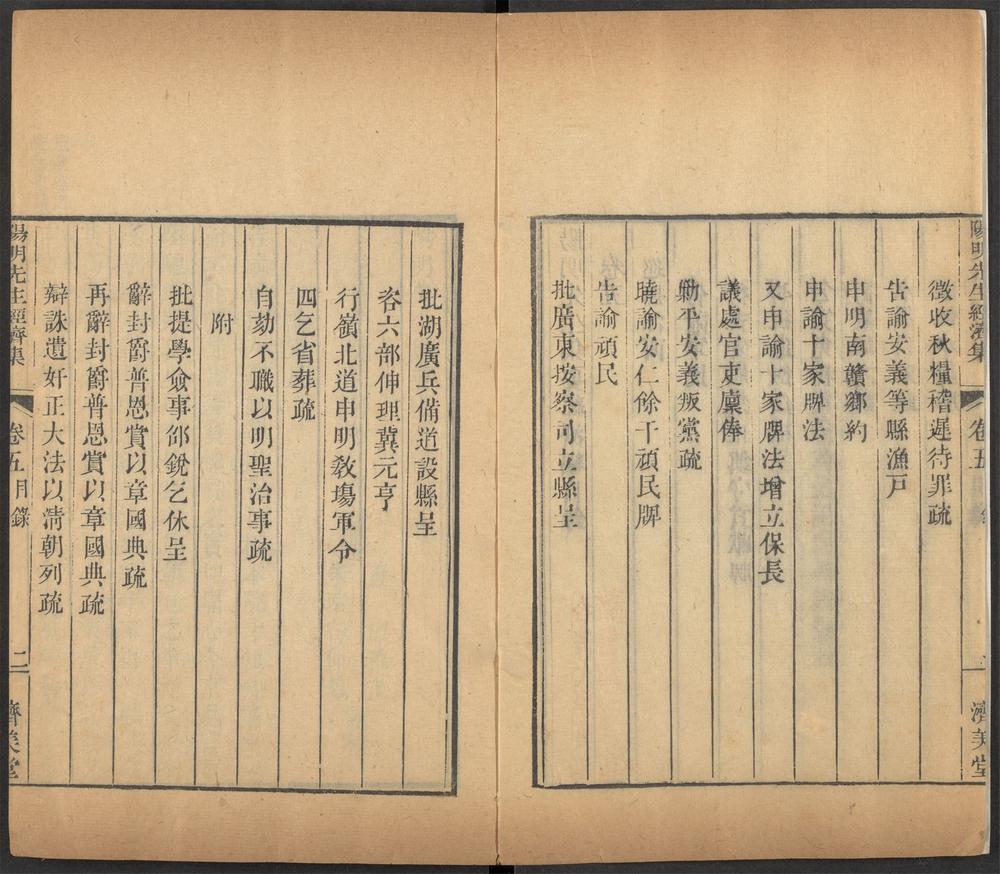 陽明先生經濟集
卷五
濟美堂
徵收秋糧稽遲待罪疏
告諭安義等縣漁戶
申明南贛鄉約
申諭十家牌法
又申諭十家牌法增立保長
議處官吏廩俸
勦平安義叛黨疏
曉諭安仁餘干頑民牌
告諭頑民
批廣東按察司立縣呈
批湖廣兵備道設縣呈
咨六部伸理冀元亨
行嶺北道申明敎塲軍令
四乞省葬疏
自劾不職以明聖治事疏
附
批提學僉事邵銳乞休呈
辭封爵普恩賞以章國典疏
再辭封爵普恩賞以章國典疏
辯誅遺奸正大法以淸朝列疏
陽明先生經濟集
卷五目錄
二
濟美堂